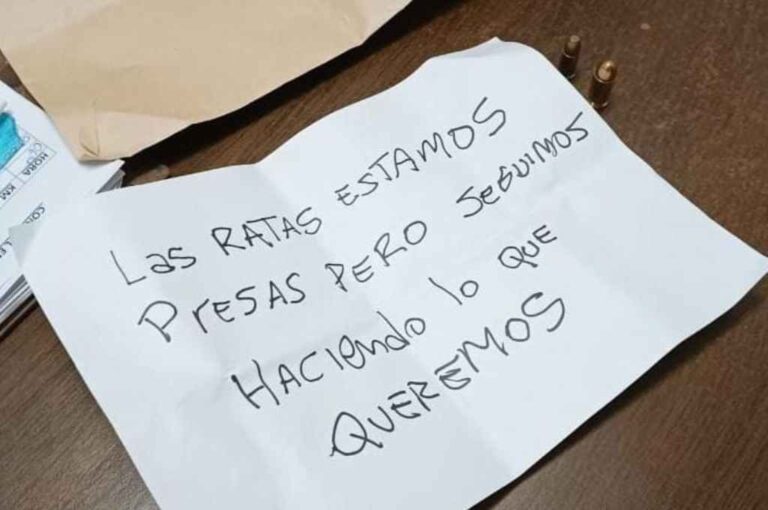 Las RATAS ESTAMOS
PresAS PERO SeGUIMOS
HACIENdo lo QUE
QUEREMOS
HORA
KM